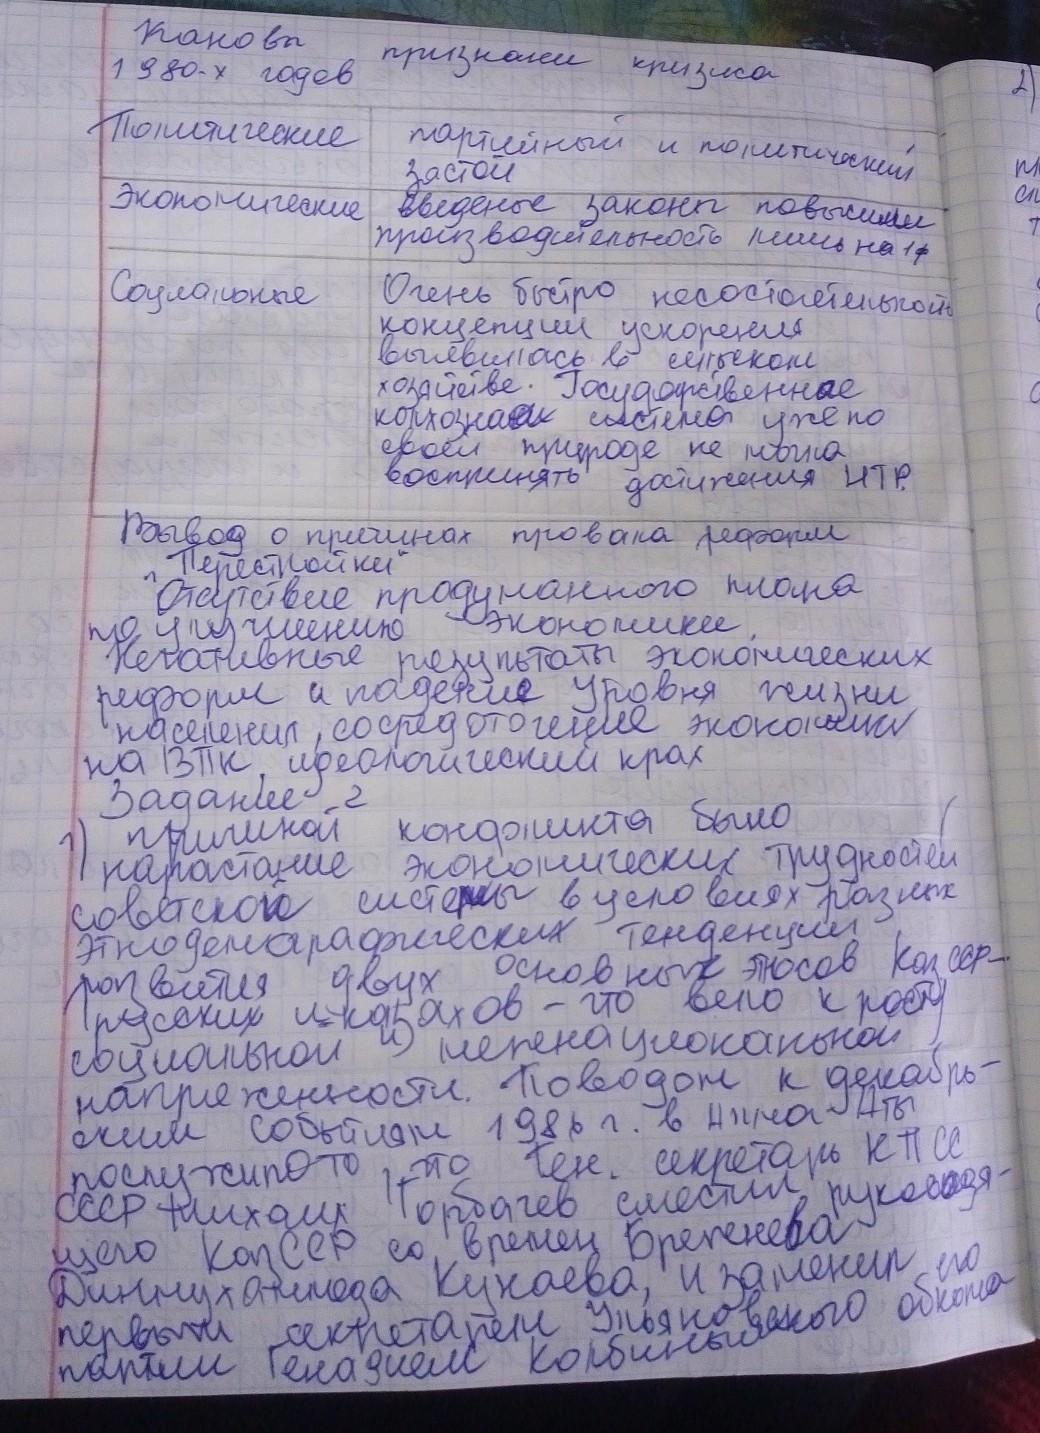 Каковы признаки кризиса
1980-х годов
Политические партийный и политический
застой
Экономические введеные законы повысили
производительность лишь на 1%
Социальные Очень быстро несостоятельность
концепции ускорения
выявилась в сельском
хозяйстве. Государственное
колхозная система уже по
своей природе не могла
воспринять достижения НТР.
Вывод о причинах провала реформ
"Перестройки"
Отсутствие продуманного плана
по улучшению экономики,
Негативные результаты экономических
реформ и падение уровня жизни
населения, сосредоточение экономики
на ВПК, идеологический крах
Задание 2
1) причиной конфликта было
нарастание экономических трудностей
советской системы в условиях разных
этнодемографических тенденции
развития двух основных этносов КазССР-
русских и казахов - что вело к росту
социальной и межнациональной
напряженности. Поводом к декабрь-
ским событиям 1986 г. в Алма-Аты
послужило то, что Ген. секретарь КПСС
СССР Михаил Горбачев сместил руководя-
щего КазССР со времен Брежнева
Динмухаммеда Кунаева, и заменил его
первым секретарем Ульяновского обкома
партии Генадием Колбиным
2)